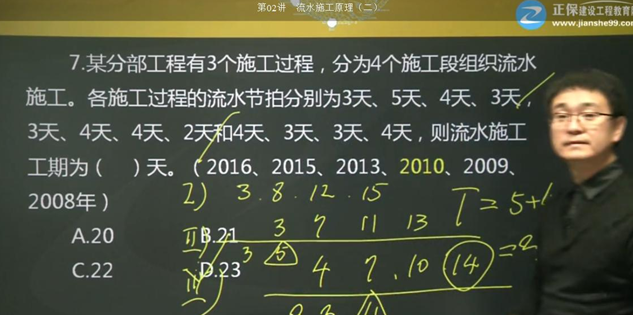 第02讲 流水施工原理（二）
正保建设工程教育网
www.jianshe99.com
7.某分部工程有3个施工过程，分为4个施工段组织流水
施工。各施工过程的流水节拍分别为3天、5天、4天、3天，
3天、4天、4天、2天和4天、3天、3天、4天，则流水施工
工期为（ ）天。（2016、2015、2013、2010、2009、
2008年）
I) 3.8.12.15
A.20
B.21
C.22
D.23
II 3 7 11 13
T=5+
3 5
III) 4 7.10 14 =
11